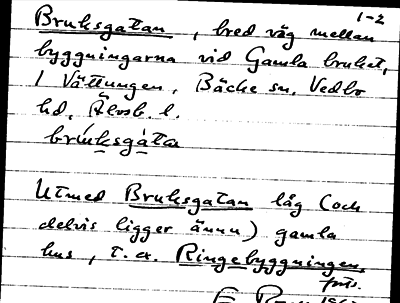 1-2
Bruksgatan, bred väg mellan
byggningarna vid Gamla bruket,
i Vättungen, Bäcke sn, Vedbo
hd, Älvsb. l.
brúksgàta
Utmed Bruksgatan låg (och
delvis ligger ännu) gamla
hus, t. ex. Ringebyggningen